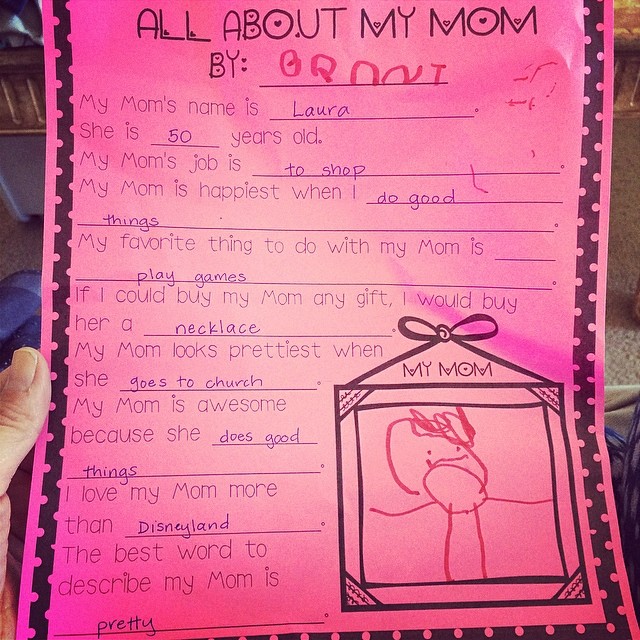 ALL ABOUT MY MOM
BY: GRANT
My Mom's name is Laura.
She is 50 years old.
My Mom's job is to shop.
My Mom is happiest when I do good
things.
My favorite thing to do with my Mom is
play games.
If I could buy my Mom any gift, I would buy
her a necklace.
My Mom looks prettiest when
she goes to church.
My Mom is awesome
because she does good
things.
I love my Mom more
than Disneyland.
The best word to
describe my Mom is
pretty.
MY MOM